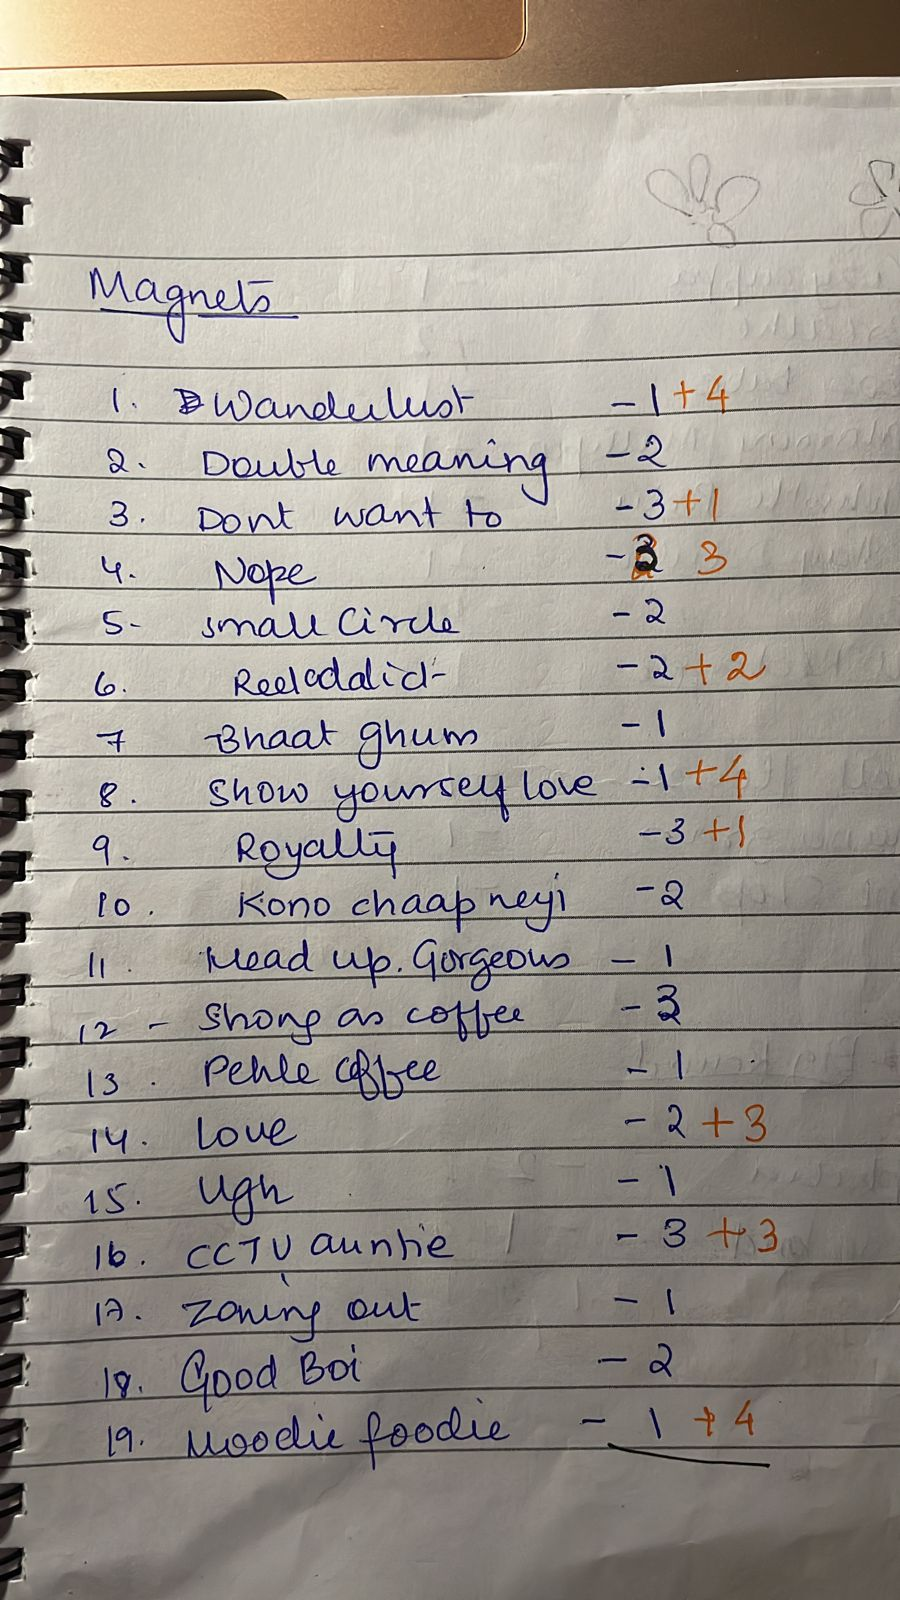 Magnets
1. Wanderlust - 1 + 4
2. Double meaning - 2
3. Dont want to - 3 + 1
4. Nope - 3
5- Small Circle - 2
6. Reel addict - 2 + 2
7 Bhaat ghum - 1
8. Show yourself love - 1 + 4
9. Royalty - 3 + 1
10. Kono chaap neyi - 2
11. Head up. Gorgeous - 1
12 - Strong as coffee - 3
13. Pehle coffee - 1
14. Love - 2 + 3
15. Ugh - 1
16. CCTV auntie - 3 + 3
17. Zoning out - 1
18. Good Boi - 2
19. Moodie foodie - 1 + 4